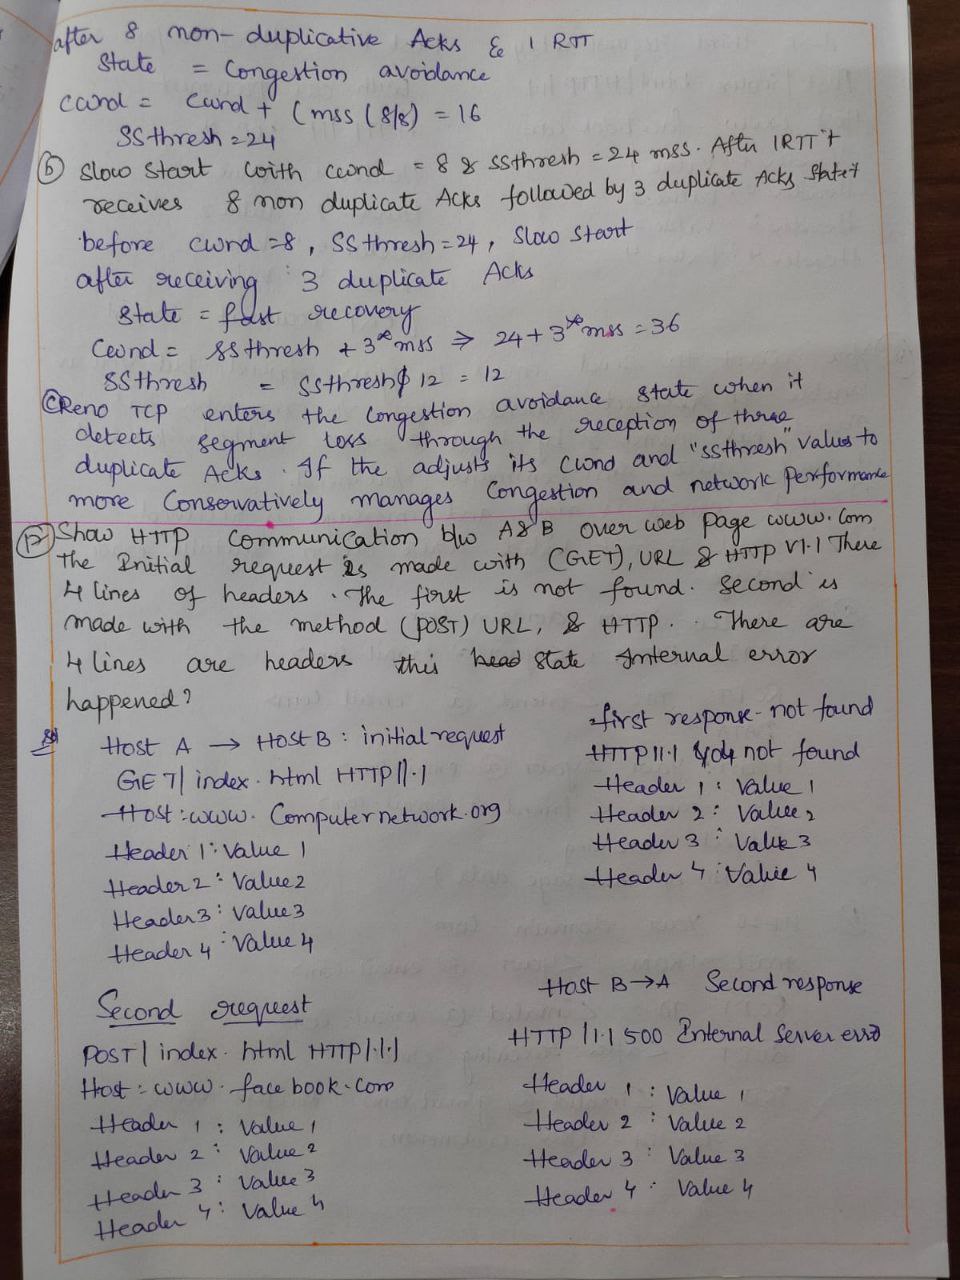 after 8 non-duplicative Acks & 1 RTT
State = Congestion avoidance
cwnd = Cwnd + (mss (8/8) = 16
SSthresh = 24
(b) Slow Start with cwnd = 8 & ssthresh = 24 mss. After 1RTT it
receives 8 non duplicate Acks followed by 3 duplicate Acks State?
before cwnd = 8, SSthresh = 24, Slow Start
after receiving 3 duplicate Acks
State = fast recovery
Cwnd = ssthresh + 3*mss ⇒ 24 + 3*mss = 36
SSthresh = SSthresh 12 = 12
(C) Reno TCP enters the Congestion avoidance state when it
detects segment loss through the reception of three
duplicate Acks. If the adjusts its cwnd and "ssthresh" values to
more Conservatively manages Congestion and network Performance
(12) Show HTTP communication b/w A&B over web page www.com
The Initial request is made with (GET), URL & HTTP V1.1 There
4 lines of headers. The first is not found. Second is
made with the method (POST) URL, & HTTP. There are
4 lines are headers this State Internal error
happened?
Sol
Host A → Host B : initial request
GET/ index.html HTTP/1.1
Host : www.Computernetwork.org
Header 1 : Value 1
Header 2 : Value 2
Header 3 : Value 3
Header 4 : Value 4
first response - not found
HTTP 11.1 404 not found
Header 1 : Value 1
Header 2 : Value 2
Header 3 : Value 3
Header 4 : Value 4
Second request
POST/ index.html HTTP/1.1
Host : www.facebook.com
Header 1 : Value 1
Header 2 : Value 2
Header 3 : Value 3
Header 4 : Value 4
Host B → A Second response
HTTP 11.1 500 Internal Server erro
Header 1 : Value 1
Header 2 : Value 2
Header 3 : Value 3
Header 4 : Value 4